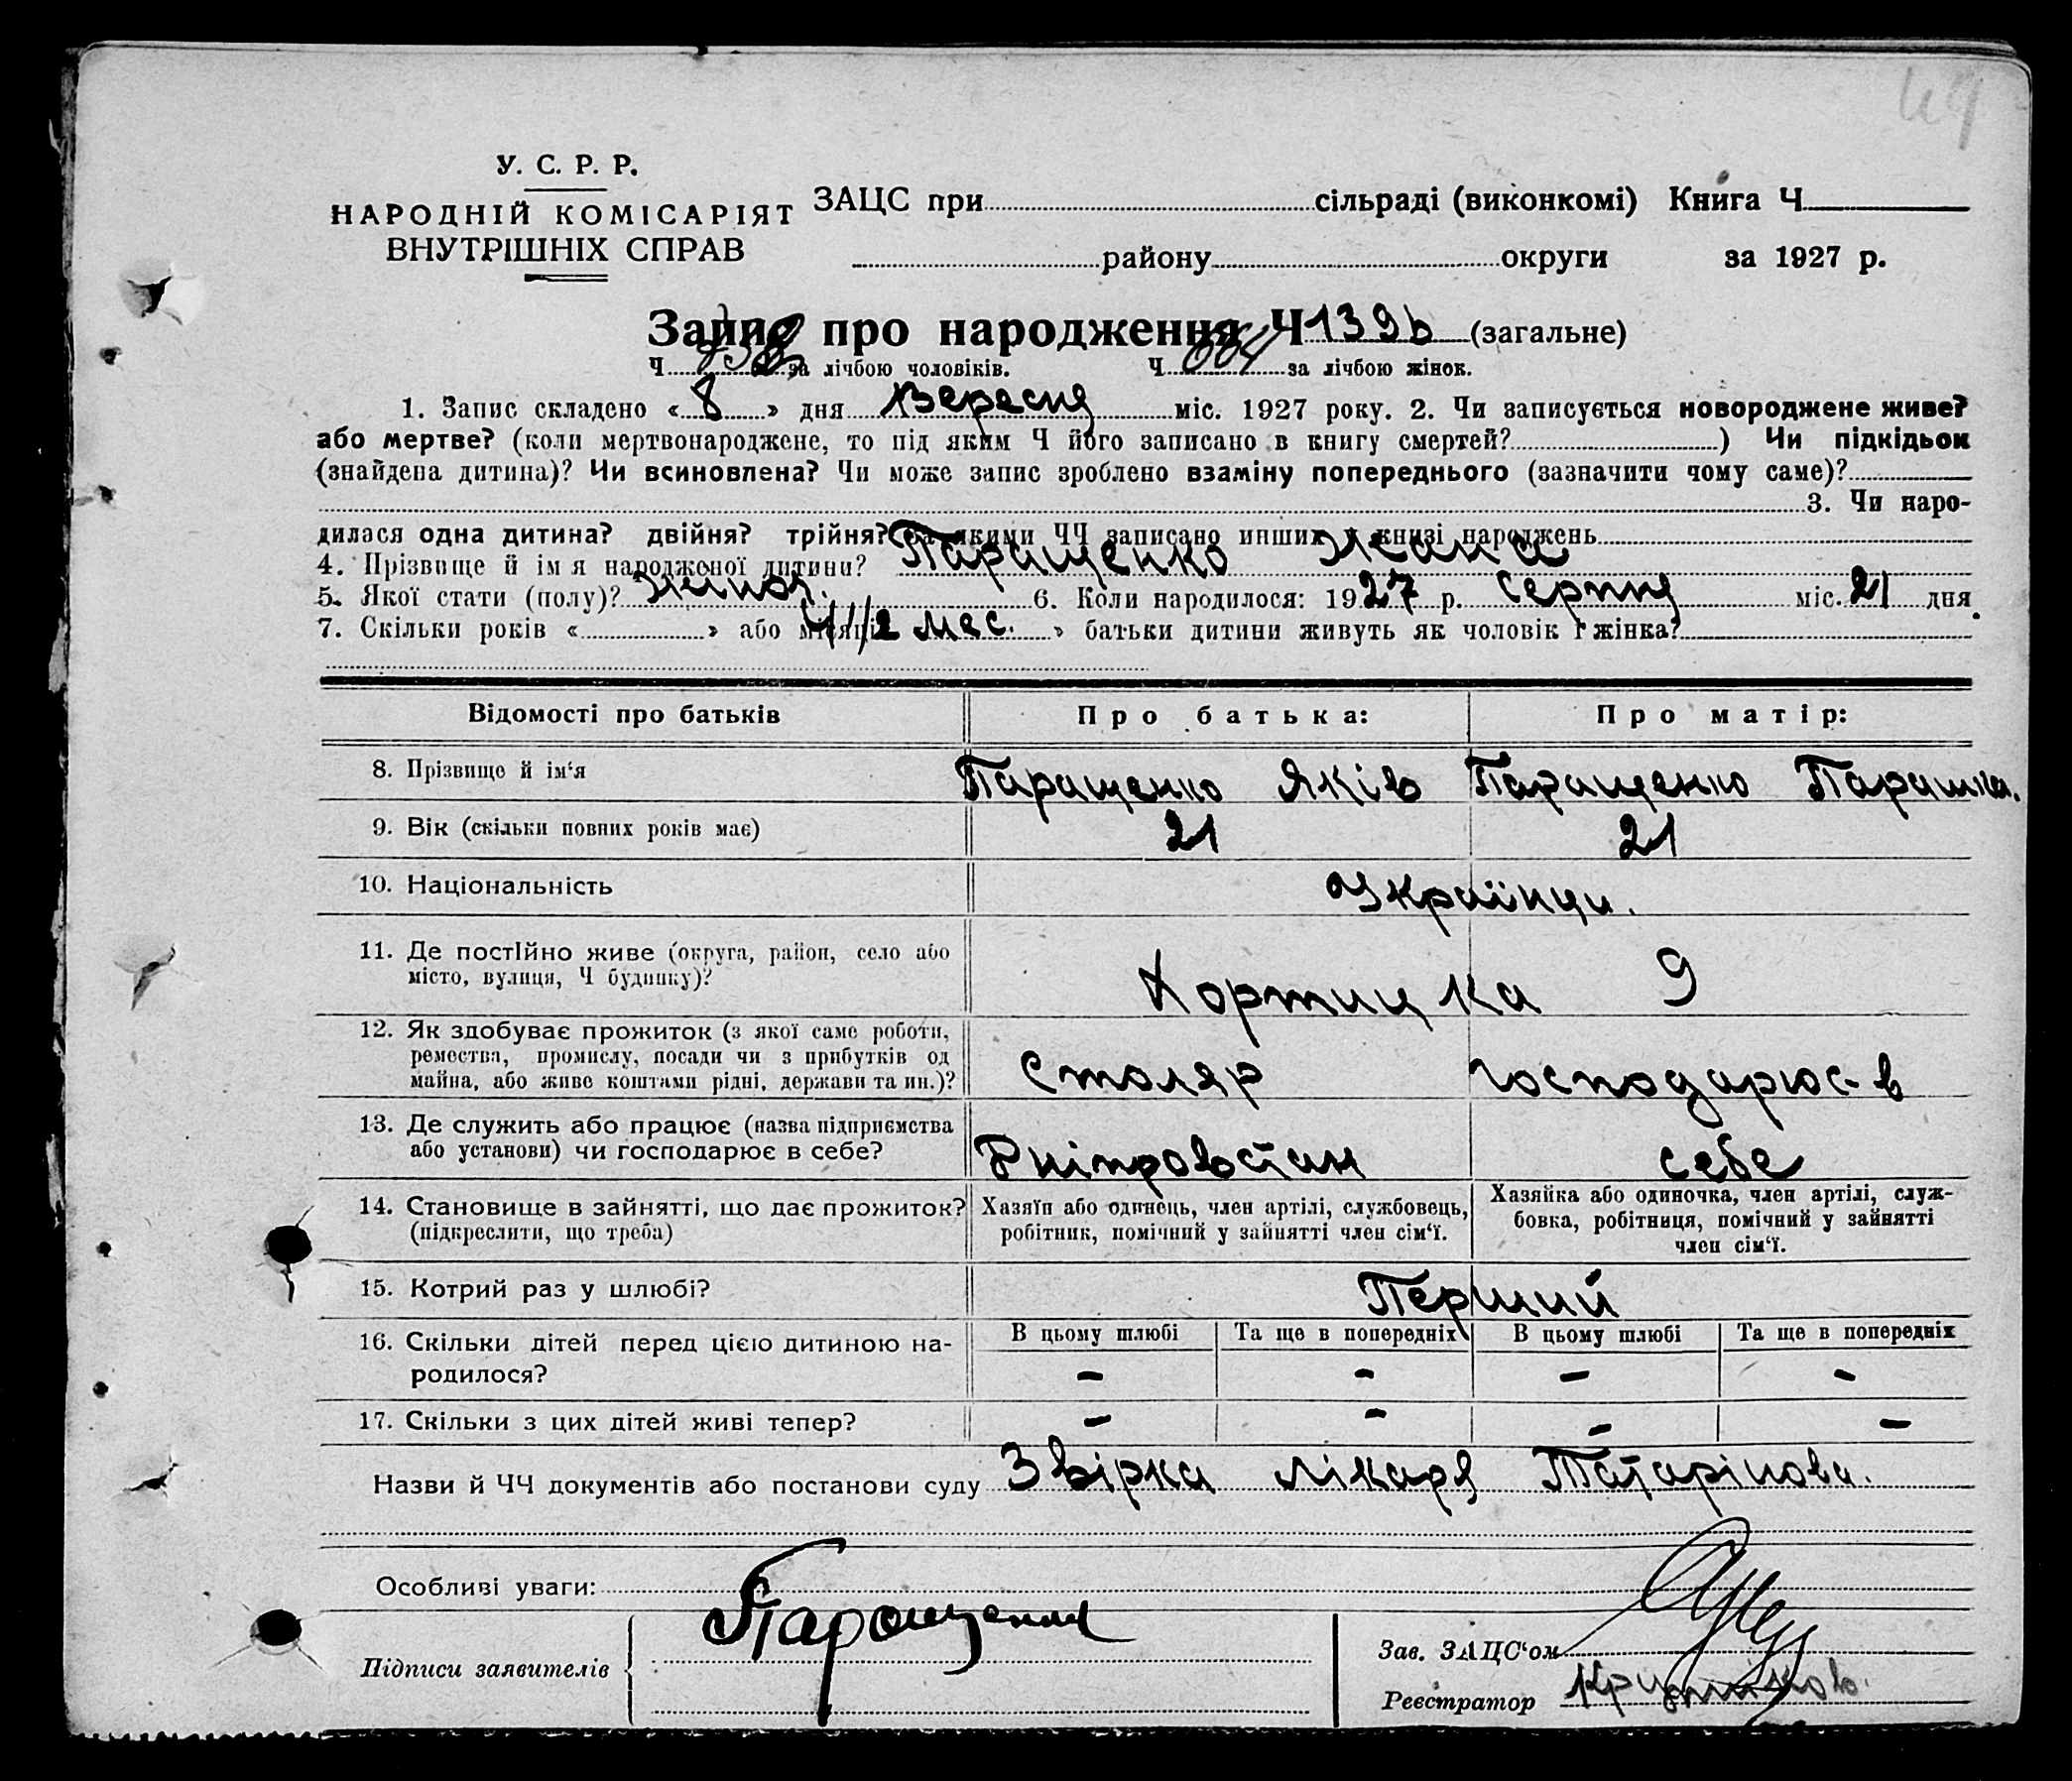 49
У. С. Р. Р.
НАРОДНІЙ КОМІСАРІЯТ
ВНУТРІШНІХ СПРАВ
ЗАЦС при сільраді (виконкомі) Книга Ч
району округи за 1927 р.
Запис про народження Ч 1396 (загальне)
Ч за лічбою чоловіків. Ч 664 за лічбою жінок.
1. Запис складено « 8 » дня Вересня міс. 1927 року. 2. Чи записується новороджене живе?
або мертве? (коли мертвонароджене, то під яким Ч його записано в книгу смертей? ) Чи підкідьок
(знайдена дитина)? Чи всиновлена? Чи може запис зроблено взаміну попереднього (зазначити чому саме)?
3. Чи наро-
дилася одна дитина? двійня? трійня? За якими ЧЧ записано инших в книзі народжень
4. Прізвище й ім я народженої дитини? Паращенко Жана
5. Якої стати (полу)? жіноч. 6. Коли народилося: 1927 р. серпня міс. 21 дня
7. Скільки років « » або місяці 11/2 мес. » батьки дитини живуть як чоловік і жінка?
Відомості про батьків Про батька: Про матір:
8. Прізвище й ім‘я Паращенко Яків Паращенко Парашка.
9. Вік (скільки повних років має) 21 21
10. Національність Українци.
11. Де постІйно живе (округа, район, село або
місто, вулиця, Ч будинку)? Хортицка 9
12. Як здобуває прожиток (з якої саме роботи,
ремества, промислу, посади чи з прибутків од
майна, або живе коштами рідні, держави та ин.)? Столяр господарює-в
13. Де служить або працює (назва підприємства
або установи) чи господарює в себе? Дніпровстан себе
14. Становище в зайнятті, що дає прожиток?
(підкреслити, що треба)
Хазяїн або одинець, член артілі, службовець,
робітник, помічний у зайнятті член сім‘ї.
Хазяйка або одиночка, член артілі, служ-
бовка, робітниця, помічний у зайнятті
член сім‘ї.
15. Котрий раз у шлюбі? Перший
16. Скільки дітей перед цією дитиною на-
родилося?
В цьому шлюбі Та ще в попередніх В цьому шлюбі Та ще в попередніх
– – – –
17. Скільки з цих дітей живі тепер? – – – –
Назви й ЧЧ документів або постанови суду Звірка лікаря Татарінова.
Особливі уваги:
Підписи заявителів Паращенко
Зав. ЗАЦС‘ом
Реєстратор